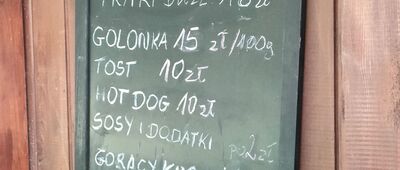 GOLONKA 15 zł/100g
TOST 10zł
HOT DOG 10zł
SOSY I DODATKI po 2 zł
GORĄCY